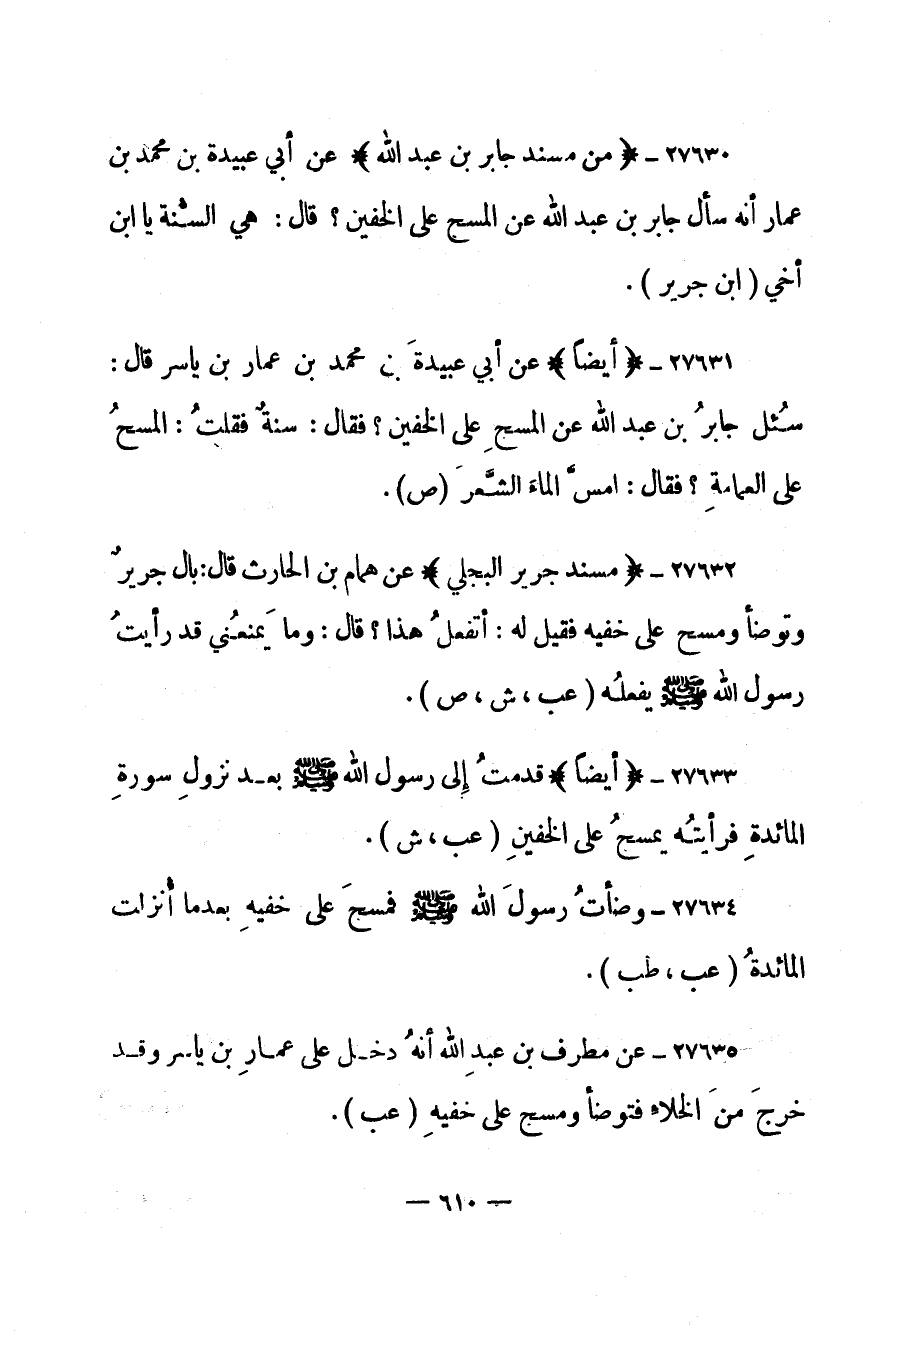 ٢٧٦٣٠ ـ ﴿ من مسند جابر بن عبد الله ﴾ عن أبي عبيدة بن محمد بن
عمار أنه سأل جابر بن عبد الله عن المسح على الخفين ؟ قال : هي السنة يا ابن
أخي ( ابن جرير ) .
٢٧٦٣١ ـ ﴿ أيضاً ﴾ عن أبي عبيدةَ بن محمد بن عمار بن ياسر قال :
سُئل جابرُ بن عبد الله عن المسحِ على الخفين ؟ فقال : سنةٌ فقلتُ : المسحُ
على العمامةِ ؟ فقال : امسَّ الماءَ الشَّعرَ (ص) .
٢٧٦٣٢ ـ ﴿ مسند جرير البجلي ﴾ عن همام بن الحارث قال: بال جريرٌ
وتوضأ ومسح على خفيه فقيل له : أتفعلُ هذا ؟ قال : وما يَمنعُني قد رأيتُ
رسول الله ﷺ يفعلُه ( عب ، ش ، ص ) .
٢٧٦٣٣ ـ ﴿ أيضاً ﴾ قدمتُ إلى رسول الله ﷺ بعد نزولِ سورةِ
المائدةِ فرأيتُه يمسحُ على الخفينِ ( عب ، ش ) .
٢٧٦٣٤ ـ وضأتُ رسولَ الله ﷺ فمسحَ على خفيهِ بعدما أُنزلت
المائدةُ ( عب ، طب ) .
٢٧٦٣٥ ـ عن مطرف بن عبدِ الله أنهُ دخل على عمارِ بن ياسر وقد
خرجَ منَ الخلاء فتوضأ ومسح على خفيهِ ( عب ) .
— ٦١٠ —